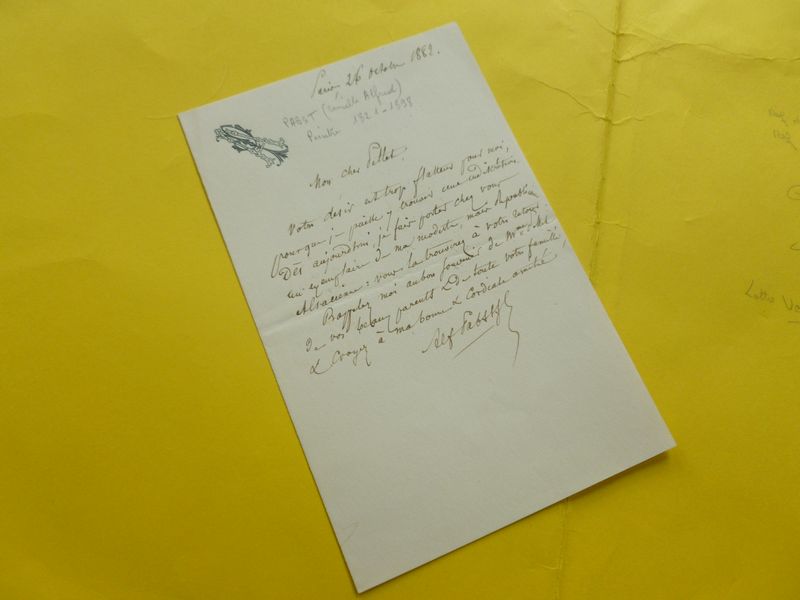 Paris 26 octobre 1882.
PABST (Camille Alfred)
Peintre 1821-1898
Mon cher
Votre désir est trop flatteur pour moi,
pour que je puisse y trouver une indiscrétion.
Dès aujourd'hui, je fais porter chez vous
un exemplaire de ma modeste, mais républicaine
Alsacienne: vous la trouverez à votre retour.
Rappelez moi au bon souvenir de Mme
de vos beaux parents & de toute votre famille,
& Croyez à ma bonne & Cordiale amitié,
Alf Pabst
Lettre